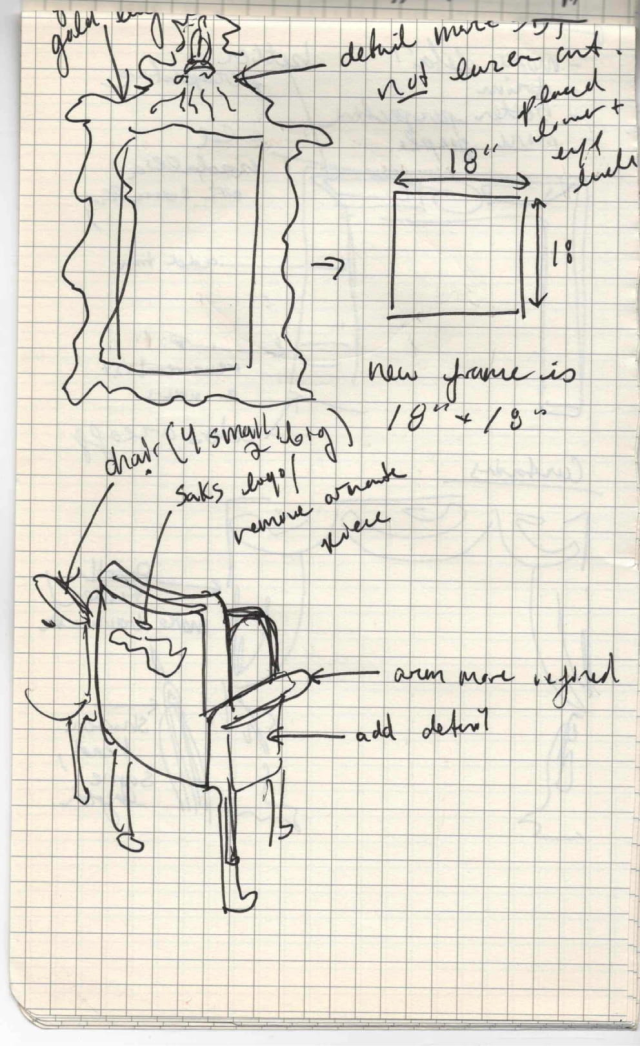 gold
detail more
not laser cut.
placed
lower +
eye
levels
18"
18
new frame is
18" +
chair (4 small 2 big)
saks logo /
remove ornate
piece
arm more refined
add detail